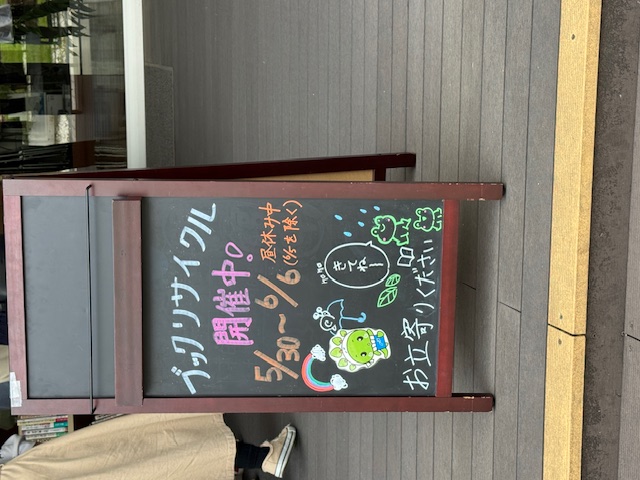 ブックリサイクル
開催中。
5/30〜6/6
昼休み中
きてねー
お立寄りください